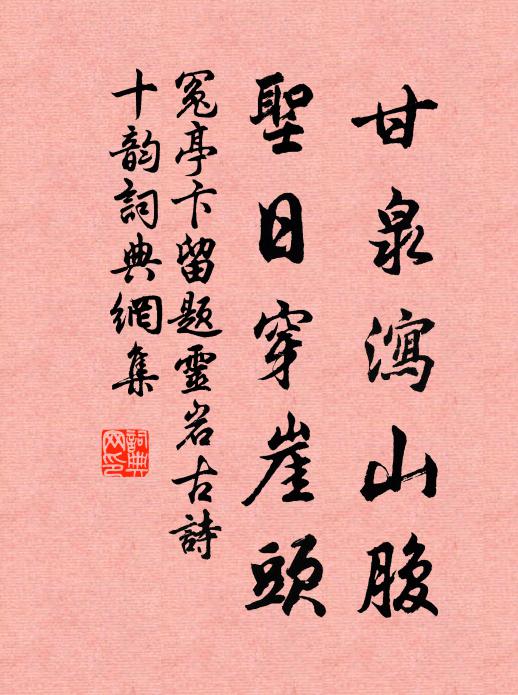 甘泉瀉山腹
聖日穿崖頭
冤亭卞留题靈岩古詩
十韵詞典網集
詞典
网印